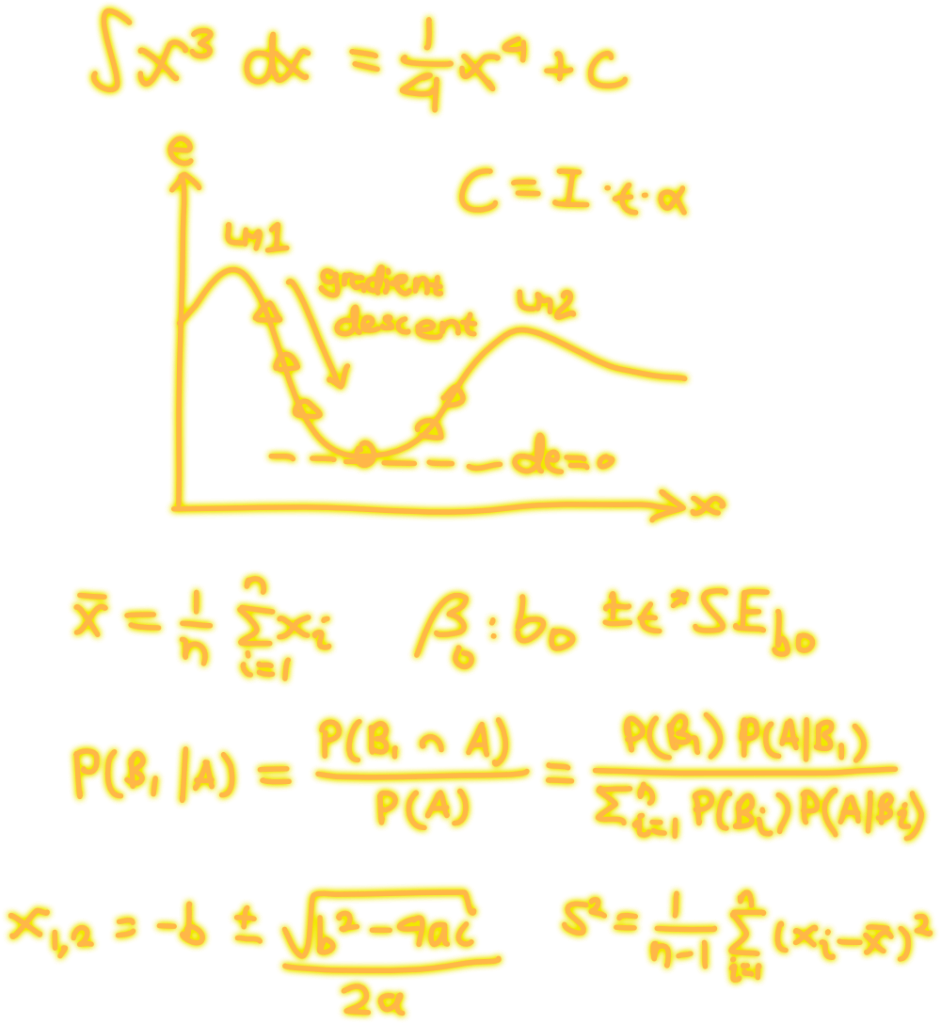 ∫x³ dx = 1/4 x⁴ + C
e
C = I · t · α
LM1
gradient
descent
LM2
de=0
x
x̄ = 1/n Σⁿᵢ₌₁ xᵢ
β₀ : b₀ ± t* SE_b₀
P(B₁ | A) = P(B₁ ∩ A) / P(A) = P(B₁) P(A|B₁) / Σⁿᵢ₌₁ P(Bᵢ) P(A|Bᵢ)
x₁,₂ = -b ± √(b² - 4ac) / 2a
s² = 1/(n-1) Σⁿᵢ₌₁ (xᵢ - x̄)²